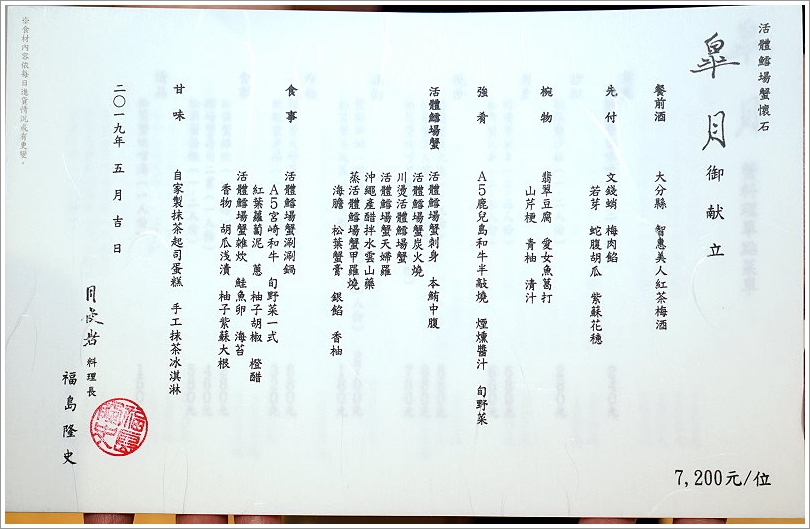 活體鱈場蟹懷石
皐月 御献立
餐前酒　大分縣　智惠美人紅茶梅酒
先付　文錢蛸　梅肉餡
若芽　蛇腹胡瓜　紫蘇花穗
椀物　翡翠豆腐　愛女魚葛打
山芹梗　青柚　清汁
強肴　A5鹿兒島和牛半敲燒　煙燻醬汁　旬野菜
活體鱈場蟹　活體鱈場蟹刺身　本鮪中腹
活體鱈場蟹炭火燒
川燙活體鱈場蟹
活體鱈場蟹天婦羅
沖繩產醋拌水雲山藥
蒸活體鱈場蟹甲羅燒
海膽　松葉蟹膏　銀餡　香柚
食事　活體鱈場蟹涮涮鍋
A5宮崎和牛　旬野菜一式
紅葉蘿蔔泥　蔥　柚子胡椒　橙醋
活體鱈場蟹雜炊　鮭魚卵　海苔
香物　胡瓜浅漬　柚子紫蘇大根
甘味　自家製抹茶起司蛋糕　手工抹茶冰淇淋
二〇一九年　五月吉日
料理長
福島隆史
※食材內容依每日進貨情況或有更變。
7,200元/位